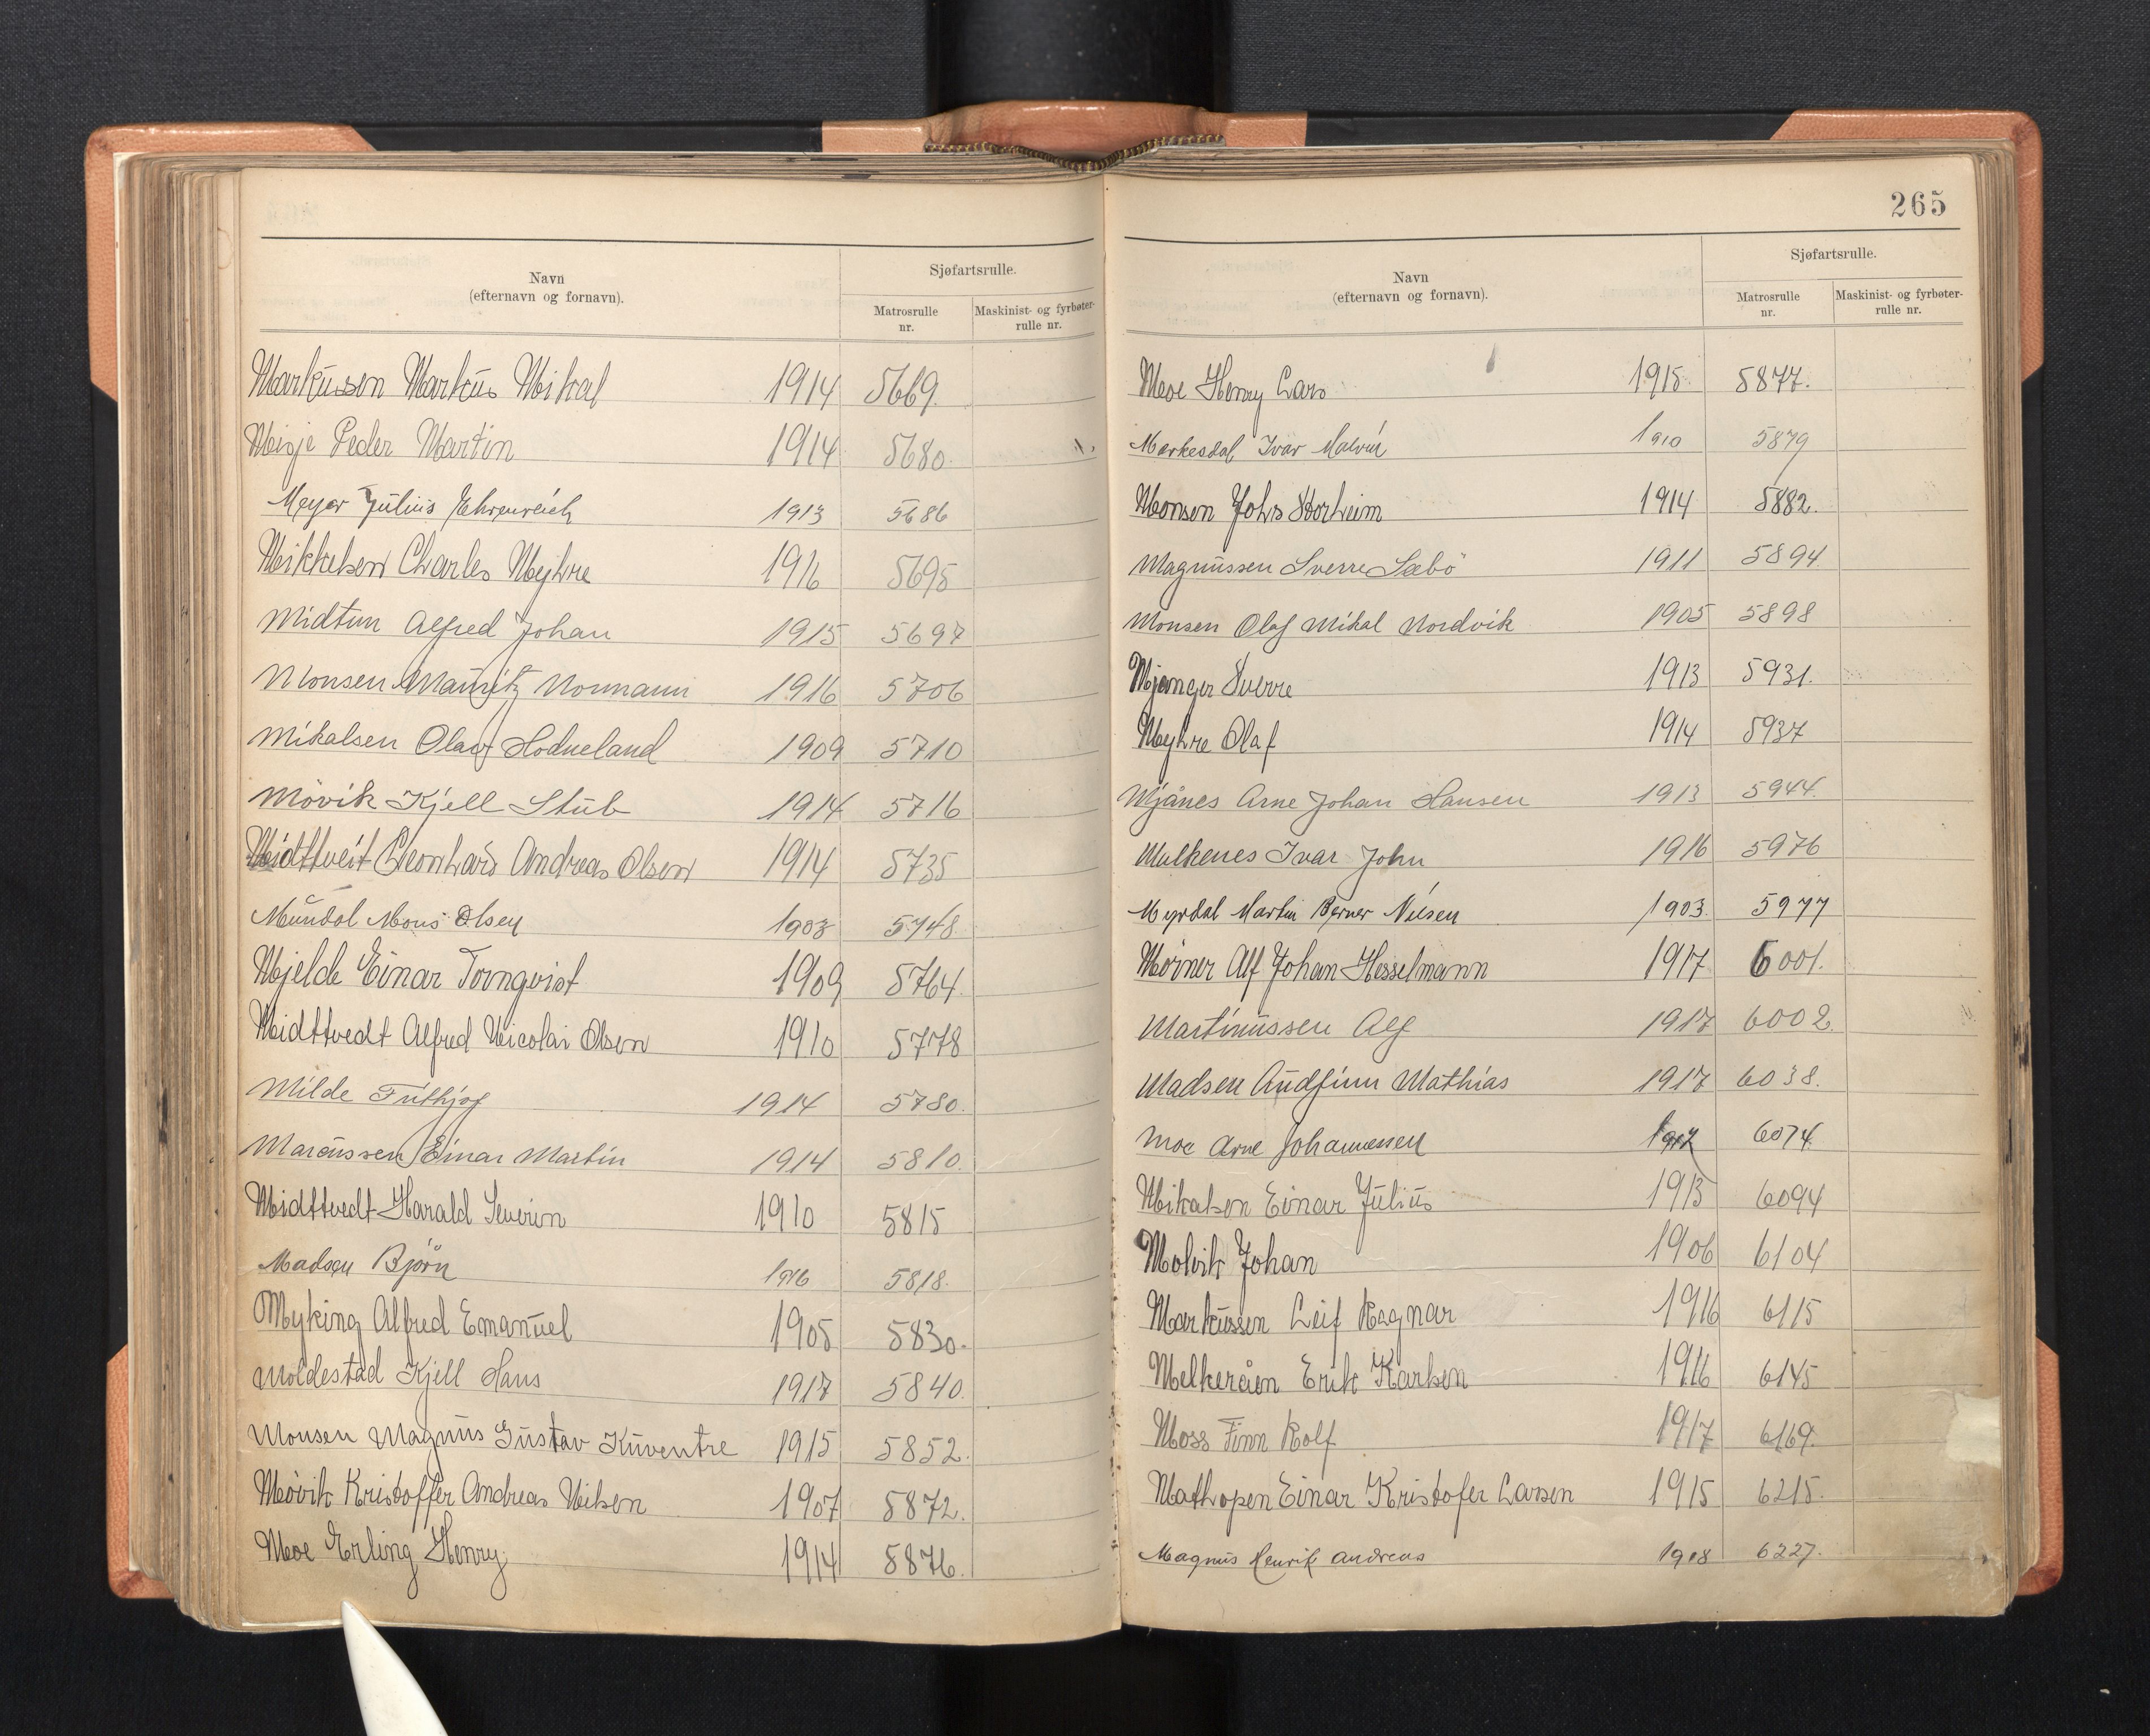 Navn
(efternavn og fornavn).
Sjøfartsrulle.
Matrosrulle
nr.
Maskinist- og fyrbøter-
rulle nr.
Markussen Markus Mikal 1914 5669.
Misje Peder Martin 1914 5680.
Meyer Julius Ehrenreich 1913 5686
Mikkelsen Charles Myhre 1916 5695
Midtun Alfred Johan 1915 5697
Monsen Mauritz Normann 1916 5706
Mikalsen Olav Hodneland 1909 5710
Mövik Kjell Stub 1914 5716
Midttveit Leonhard Andreas Olsen 1914 5735
Mundal Mons Olsen 1903 5748
Mjelde Einar Tornqvist 1909 5764.
Midttvedt Alfred Nicolai Olsen 1910 5778
Milde Frithjof 1914 5780.
Marcussen Einar Martin 1914 5810.
Midttvedt Harald Severin 1910 5815
Madsen Björn 1916 5818.
Myking Alfred Emanuel 1905 5830.
Moldestad Kjell Hans 1917 5840.
Monsen Magnus Gustav Kuventre 1915 5852.
Mövik Kristoffer Andreas Nilsen 1907 5872.
Moe Erling Henry 1914 5876.
265
Navn
(efternavn og fornavn).
Sjøfartsrulle.
Matrosrulle
nr.
Maskinist- og fyrbøter-
rulle nr.
Moe Henry Lars 1915. 5877.
Markesdal Ivar Malvin 1910 5879
Monsen Johs Storheim 1914 5882.
Magnussen Sverre Sæbö 1911 5894
Monsen Olaf Mikal Nordvik 1905 5898
Mjanger Sverre 1913 5931.
Myhre Olaf 1914 5937
Mjånes Arne Johan Hansen 1913 5944.
Mulkenes Ivar John 1916 5976
Myrdal Martin Berner Nilsen 1903. 5977
Mörner Alf Johan Hesselmann 1917 6001.
Martinussen Alf 1917 6002
Madsen Audfinn Mathias 1917 6038.
Moe Arne Johannessen 6074.
Mikalsen Einar Julius 1913 6094
Molvik Johan 1906 6104
Markussen Leif Ragnar 1916 6115
Melkeråen Erik Karlsen 1916 6145
Moss Finn Rolf 1917 6169.
Mathopen Einar Kristofer Larsen 1915 6215.
Magnus Henrik Andreas 1918 6227.